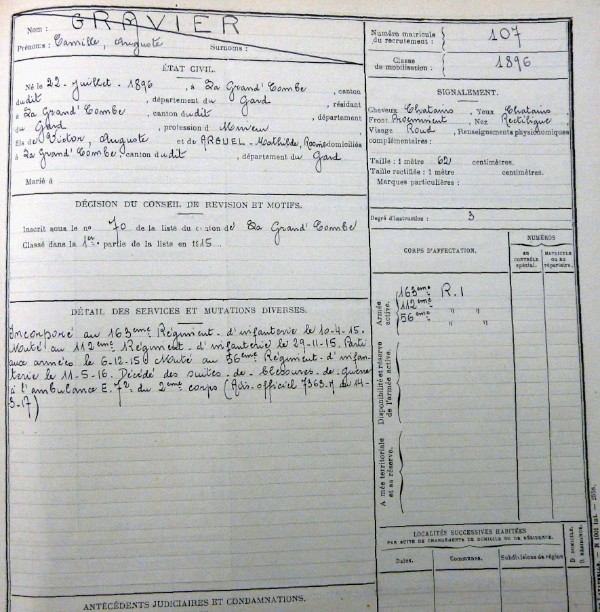 Nom : GRAVIER
Prénoms : Camille, Auguste Surnoms :
Numéro matricule du recrutement : 107
Classe de mobilisation : 1896
ÉTAT CIVIL.
Né le 22 - Juillet - 1896, à La Grand' Combe, canton
dudit, département du Gard, résidant
à La Grand' Combe, canton dudit, département
du Gard, profession d Mineur
fils de Victor, Auguste et de ARGUEL - Mathilde, domiciliés
à La Grand' Combe, canton dudit, département du Gard
Marié à
SIGNALEMENT.
Cheveux Chatains, Yeux Chatains
Front Proeminent, Nez Rectiligne
Visage Rond, Renseignements physionomiques
complémentaires :
Taille : 1 mètre 62 centimètres.
Taille rectifiée : 1 mètre centimètres.
Marques particulières :
Degré d'instruction : 3
DÉCISION DU CONSEIL DE RÉVISION ET MOTIFS.
Inscrit sous le no 70 de la liste du canton de La Grand' Combe
Classé dans la 1ere partie de la liste en 1915
CORPS D'AFFECTATION.
NUMÉROS
AU CONTRÔLE spécial.
MATRICULE OU AU répertoire.
Armée active.
163eme R.I
112eme " "
56eme " "
Disponibilité et réserve de l'armée active.
Armée territoriale et sa réserve.
DÉTAIL DES SERVICES ET MUTATIONS DIVERSES.
Incorporé au 163eme Régiment - d'infanterie le 10-4-15.
Muté au 112eme Régiment - d'infanterie le 29-11-15. Parti
aux armées le 6-12-15. Muté au 56eme Régiment - d'infan-
terie le 11-5-16. Décédé des suites - de - blessures - de - guerre
à l'ambulance E. 7² du 2eme corps (Avis - officiel 7363-M du 14-
5-17)
LOCALITÉS SUCCESSIVES HABITÉES
PAR SUITE DE CHANGEMENTS DE DOMICILE OU DE RÉSIDENCE.
Dates. Communes. Subdivisions de région
D. DOMICILE.
R. RÉSIDENCE.
ANTÉCÉDENTS JUDICIAIRES ET CONDAMNATIONS.